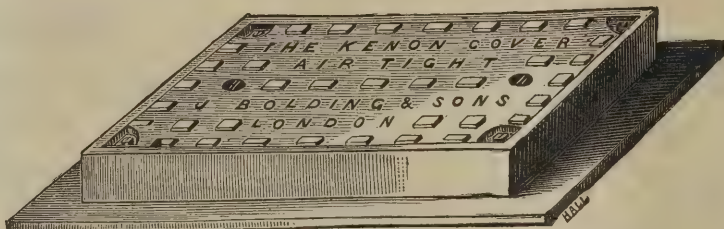 THE KENON COVER
AIR TIGHT
J BOLDING & SONS
LONDON
HALL